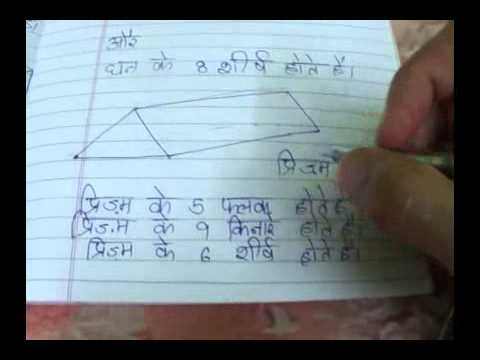 और
घन के 8 शीर्ष होते है।
प्रिज़म
प्रिज़म के 5 फलक होते है
प्रिज़म के 9 किनारे होते है।
प्रिज़म के 6 शीर्ष होते है।